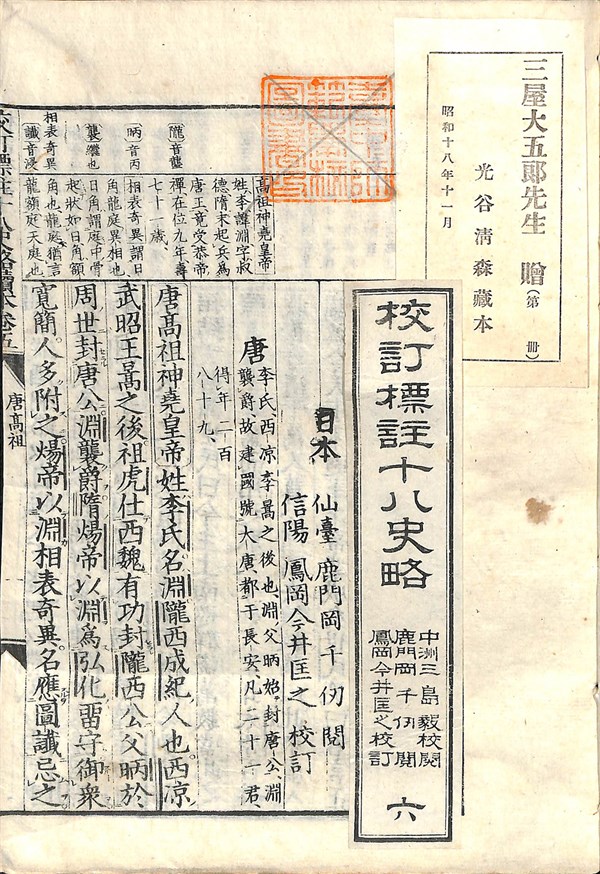 三屋大五郎先生 贈(第 冊)
光谷清森藏本
昭和十八年十一月
校訂標註十八史略
中洲三島毅校閱
鹿門岡千仞閱
鳳岡今井匡之校訂
六
日本
仙臺 鹿門岡千仞 閱
信陽 鳳岡今井匡之 校訂
唐
李氏、西凉李暠之後也、淵父昞始封唐公、淵
襲爵故建國號大唐、都于長安、凡二十一君、
得年二百
八十九、
唐高祖神堯皇帝姓李氏名淵隴西成紀人也西凉
武昭王暠之後祖虎仕西魏有功封隴西公父昞於
周世封唐公淵襲爵隋煬帝以淵爲弘化畱守御衆
寬簡人多附之煬帝以淵相表奇異名應圖讖忌之
高祖神堯皇帝
姓李諱淵字叔
德隋末起兵爲
唐王竟受恭帝
禪在位九年壽
七十一歲
相表奇異謂日
角龍庭異相也
日角謂庭中骨
起狀如日角額
角也龍庭猶言
龍額庭天庭也
隴音聾
昞音丙
襲繼也
相表奇異
讖音浸
校訂標註十八史略讀本卷五
唐高祖